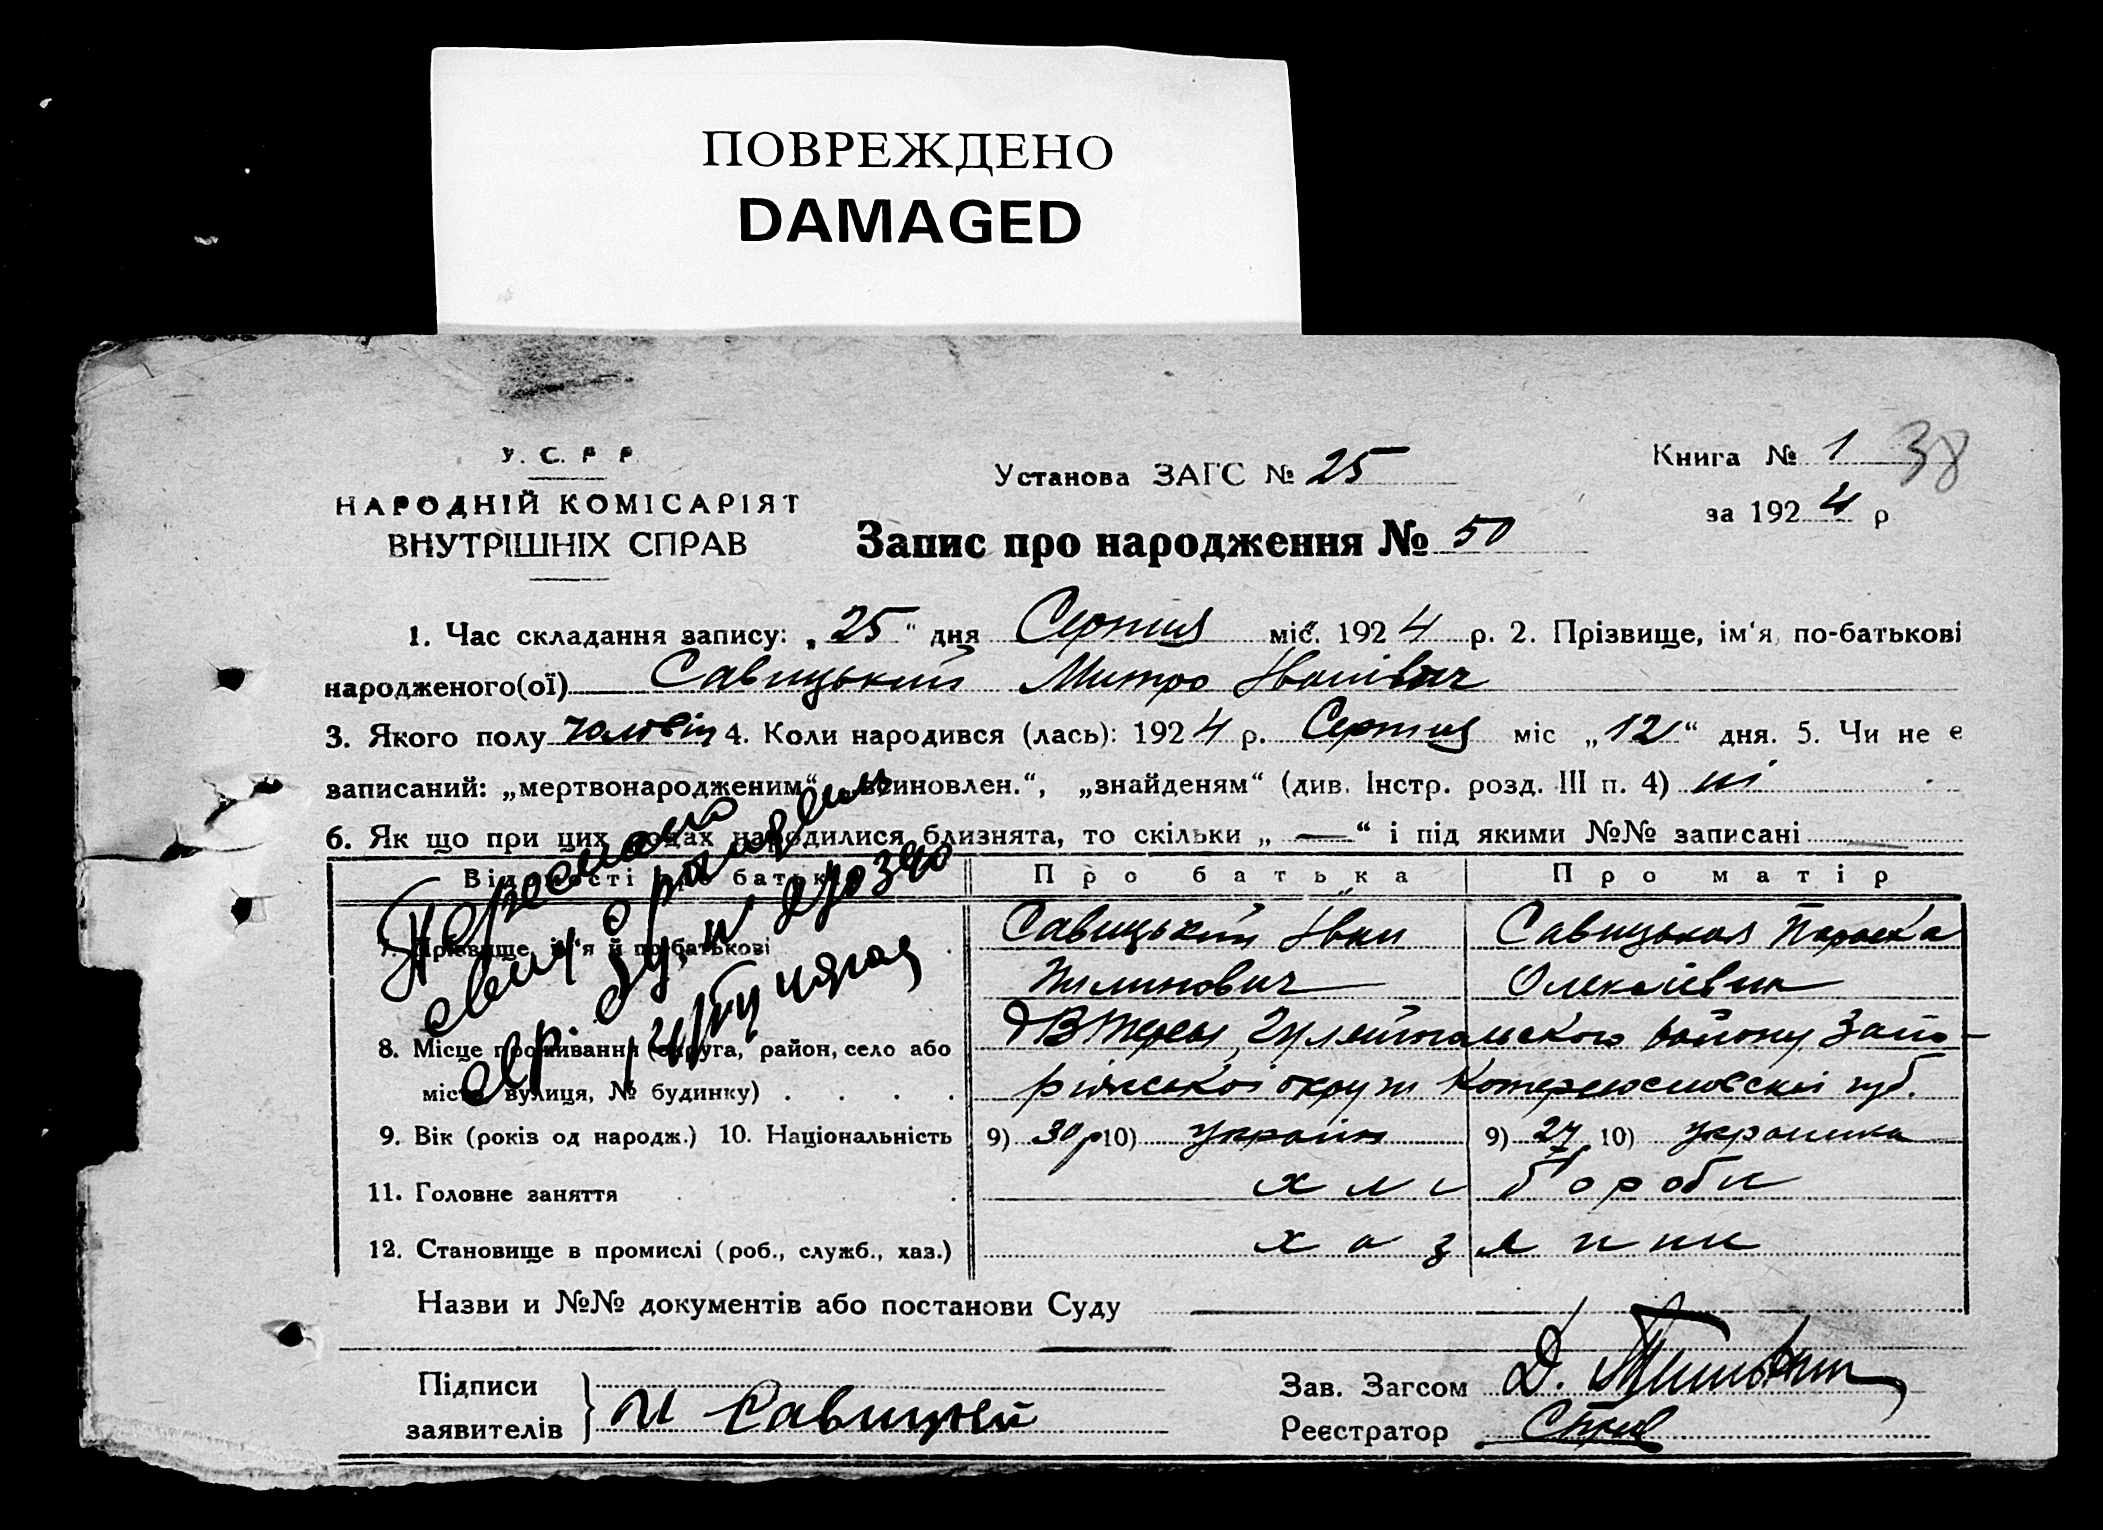 ПОВРЕЖДЕНО
DAMAGED
У. С. Р. Р.
НАРОДНІЙ КОМІСАРІЯТ
ВНУТРІШНІХ СПРАВ
Установа ЗАГС № 25
Книга № 1 38
за 1924 р
Запис про народження № 50
1. Час складання запису: „25“ дня Серпня міс. 1924 р. 2. Прізвище, ім‘я, по-батькові
народженого(ої) Савицький Митро Іванівич
3. Якого полу чоловіч 4. Коли народився (лась): 1924 р. Серпня міс „12“ дня. 5. Чи не є
записаний: „мертвонародженим“, „всиновлен.“, „знайденям“ (див. Інстр. розд. III п. 4) ні
6. Як що при цих родах народилися близнята, то скільки „ — “ і під якими №№ записані
Відомості про батьків Про батька Про матір
7. Прізвище, ім‘я й по-батькові Савицький Іван Савицькая Параска
Олексіевна
8. Місце проживання (округа, район, село або Гуляйпольского району Запо-
місто, вулиця, № будинку) ріжської округи Катеринославскої губ.
9. Вік (років од народж.) 10. Національність 9) 30 р 10) українец 9) 27 10) украинка
11. Головне заняття хлібороби
12. Становище в промислі (роб., служб., хаз.) хазяини
Назви и №№ документів або постанови Суду
Підписи
заявителів И Савицкий
Зав. Загсом Д.
Реєстратор